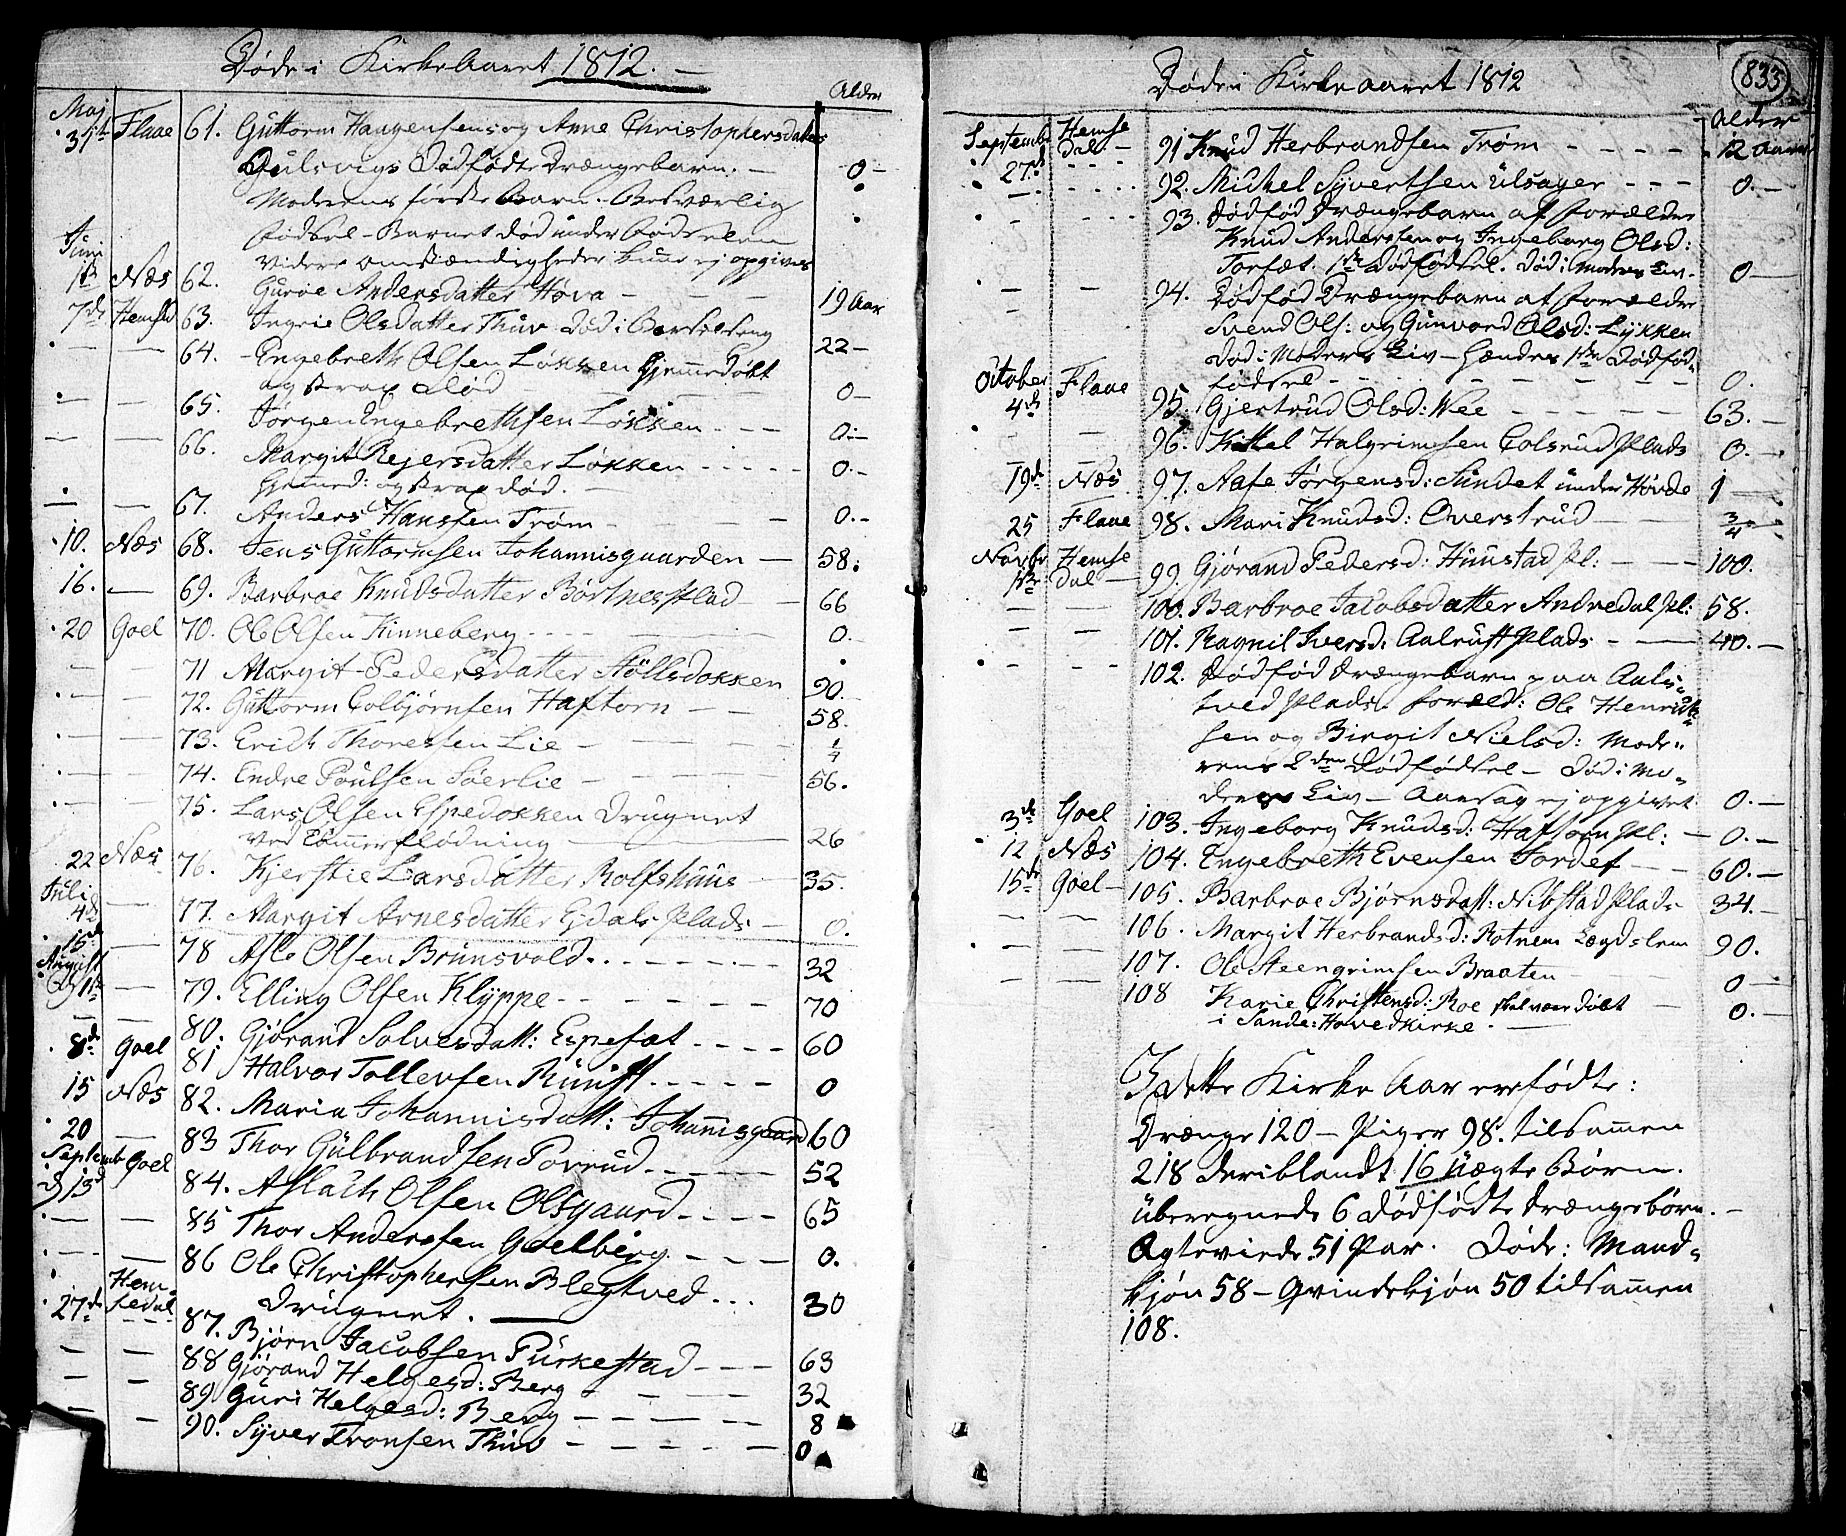 Døde i Kirkeaaret 1812. —
Alder
Maj
31te Flaae 61. Guttorm Haagensens og Anne Christophersdatters
Gulsvigs dødfødte Drængebarn. — 0 —
Moderens første Barn. Besværlig
Fødsel — Barnet død under Fødselen
videre omstændigheder kune ej opgives
Juni
1te Næs 62. Guroe Andersdatter Hova — 19 Aar
7de Hemsed 63. Ingrie Olsdatter Thuv død i Barselseng 22 —
— — 64. Engebreth Olsen Løkken Hjemmedøbt
og strax død 0 —
— — 65. Jørgen Engebrethsen Løkken - - - 0. —
— — 66. Margit Rejersdatter Løkken - - - - - 0. —
Hjemmed: og strax død. —
— — 67. Anders Hansen Trøm - — 0. —
10. Næs 68. Jens Guttormsen Johannisgaarden — 58.
16. — 69. Barbroe Knudsdatter Børtnes Plad — 66
20 Goel 70. Ole Olsen Kinneberg - - - - 0.
— 71 Margit Pedersdatter Stöllsdokken 90.
— — 72. Guttorm Colbjørnsen Haftorn — — 58.
— — 73. Erich Thoresen Lie — 1/4
— — 74. Endre Poulsen Søerlie — 56.
— — 75. Lars Olsen Espedokken Drugnet
ved Tømmerflødning — 26
22 Næs 76. Kjerstie Larsdatter Rolfshuus — 35.
Juli
4de — 77. Margit Arnesdatter Ejdals Plads — 0.
15de — 78 Asle Olsen Brunsvold. - - - 32
August
d 1te — 79. Elling Olsen Klyppe - - - - 70
— — 80. Gjørand Solvesdatt: Espeset - - - - 60
8de Goel 81 Halvor Tollevsen Ruust - - - - - 0
15 Næs 82. Maria Johannisdatt: Johannisgaard 60
20 — 83 Thor Gulbrandsen Porrud - - - - - 52
Septemb
d 13de Goel 84. Aslach Olsen Olsgaard - - - - 65
— — 85 Thor Andersen Goelberg - - - - 0.
— — 86 Ole Christophersen Blegtved - - -
Drugnet. — 30
27de Hemsedal 87. Bjørn Jacobsen Purkestad - - - 63
— — 88 Gjørand Helgesd: Berg - 32
— — 89 Guri Helgesd: Berg — — — — 8
— — 90. Syver Tronsen Thuv — — — — 0
Døde i Kirkeaaret 1812
833
Alder
Septembr Hemse
27de dal — 91 Knud Herbrandsen Trøm - - - - - 12 Aar
— - - 92. Michel Syvertsen Ulsager - - - 0. —
— - - - 93. Dødfød Drængebarn af Forælder
Knud Andersen og Ingeborg Olsd:
Torset. 1ste Dødfødsel. død i Moders Liv — 0 —
— — 94. Dødfød Drængebarn af Forælder
Svend Ols: og Gunvord Olsd: Lykken
død i Moders Liv — Hændes 1ste Dødfød-
fødsel - - - 0.
October
4de Flaae 95. Gjertrud Olsd: Wee — — — 63. —
— — 96. Kittel Halgrimsen Colsrud Plads 0. —
19de Næs 97. Aase Jørgensd: Sundet under Hovde 1 —
25 Flaae 98. Mari Knudsd: Overstrud — 3/4 —
Novbr
1ste Hemsedal — 99. Gjørand Pedersd: Huustad Pl: — 100.
— — 100. Barbroe Jacobsdatter Andredal Pl: 58.
— — 101. Ragnil Iversd: Aalrust Plads - — 40. —
— - - 102. Dødfød Drængebarn paa Aals-
tved Plads. Foræld: Ole Henrick-
sen og Birgit Nielsd: Mode-
rens 2den Dødfødsel — Død i Mo-
deres Liv — Aarsag ej opgivet 0. —
3de Goel 103. Ingeborg Knudsd: Haftorn Pl: — 0. —
12 Næs 104. Engebreth Evensen Jordef — 60. —
15de Goel — 105. Barbroe Bjørnsdatt: Nibstad Plads 34. —
— — 106. Margit Herbrandsd: Rotnem Lægdslem 90.
— — 107. Ole Steengrimsen Braaten — 0 —
— — 108 Karie Christensd: Roe skal være døbt
i Sande: Hovedkirke. — 0. —
I dette Kirke Aar ere fødte:
Drænge 120 — Piger 98. tilsammen
218 deriblandt 16 Uægte Børn.
uberegnede 6 dødfødte Drængebørn. —
Ægteviede 51 Par. Døde: Mand-
kjøn 58 — Qvindekjøn 50 tilsammen
108.